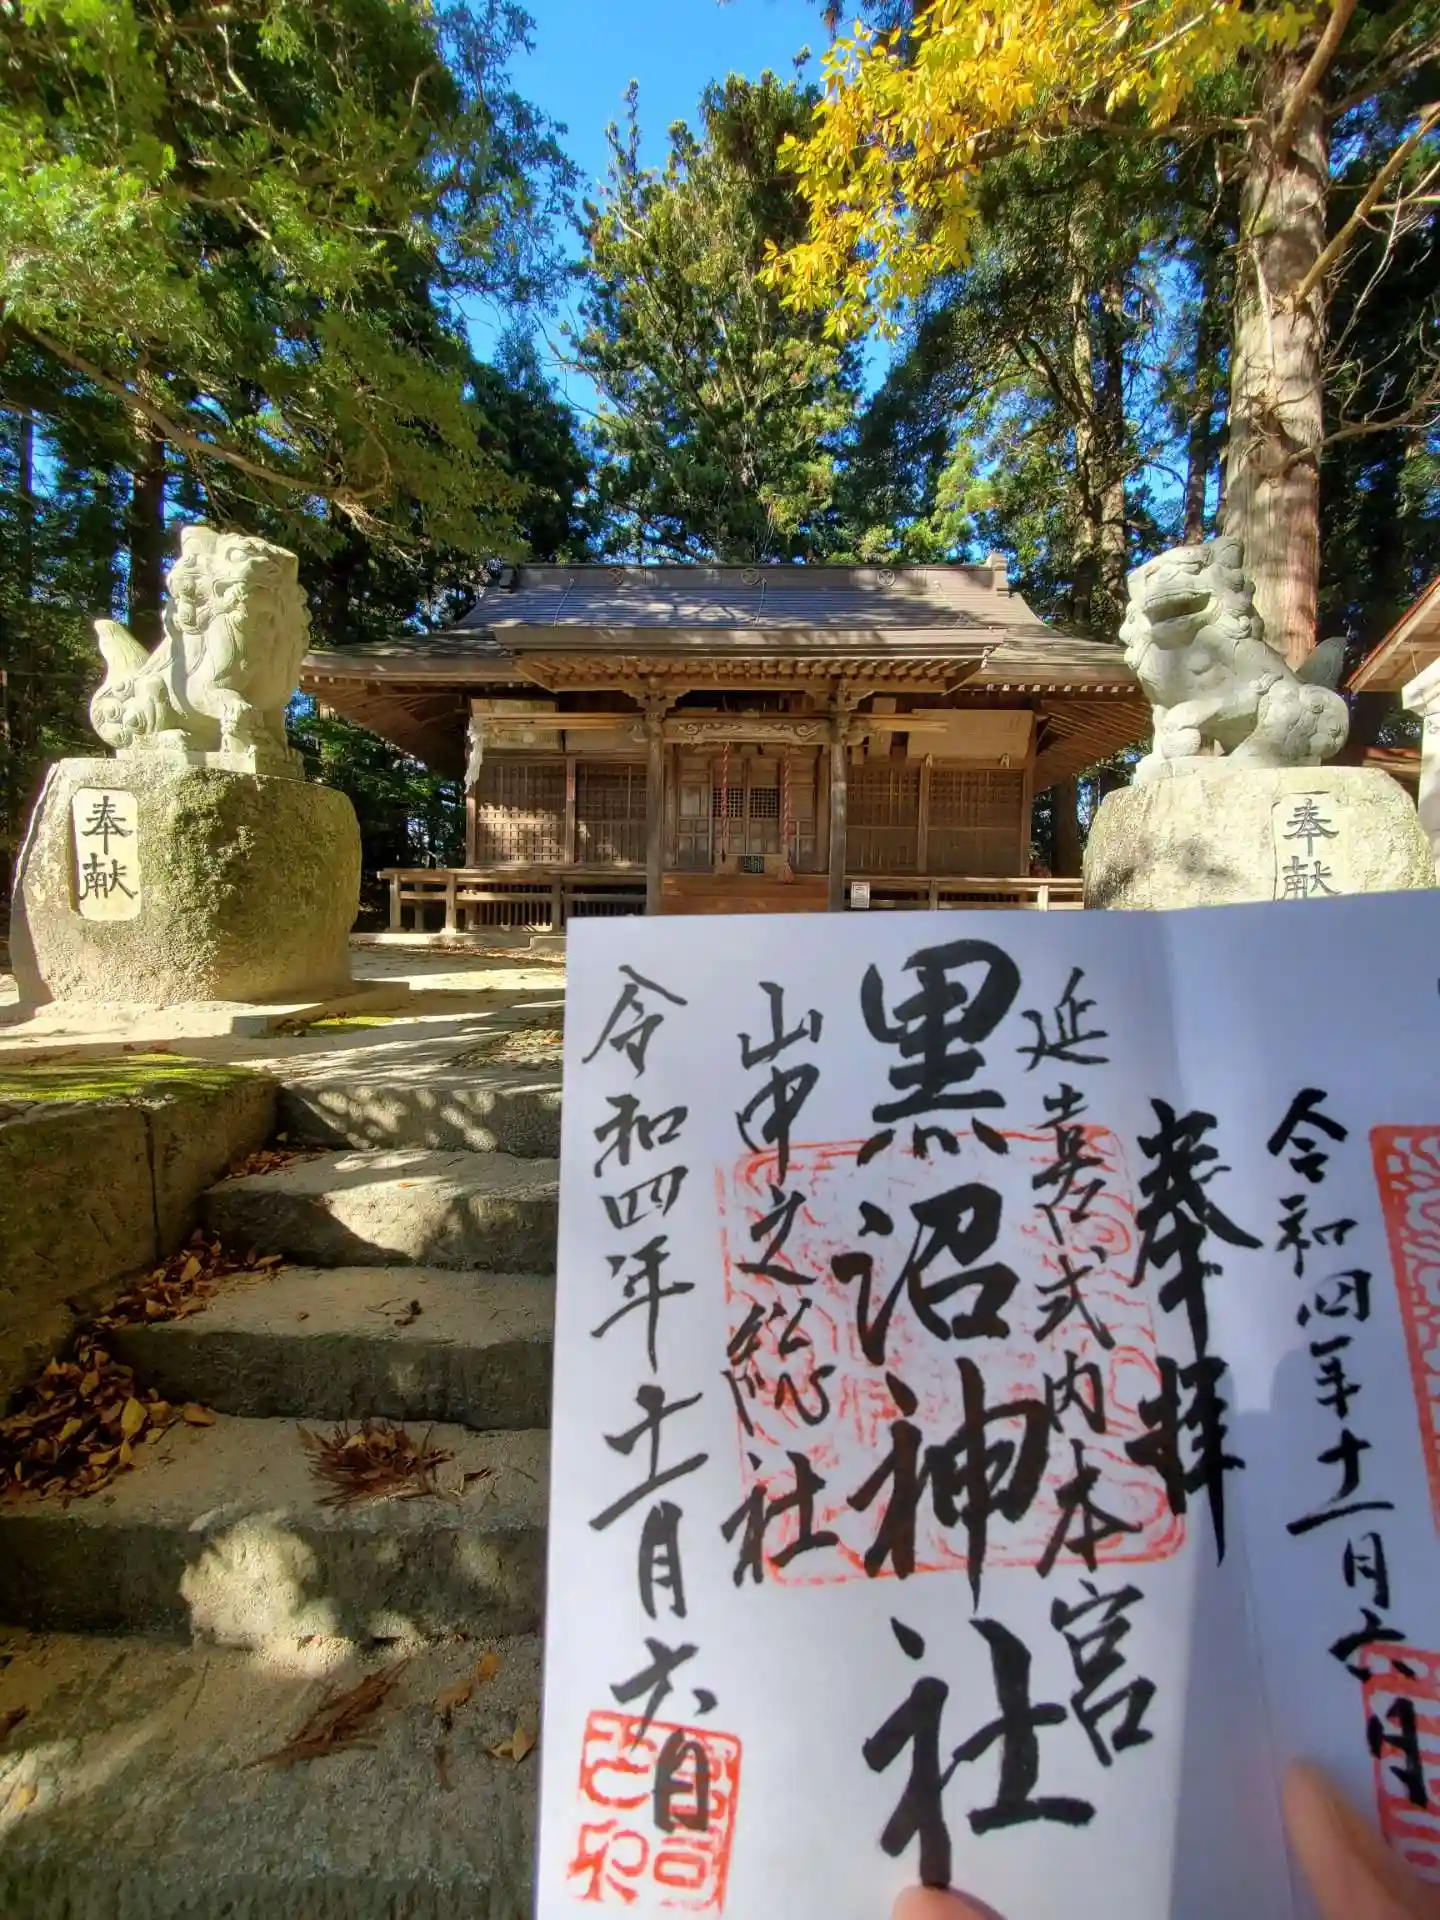 奉献
奉献
奉拝
延喜式内本宮
黒沼神社
山中之総社
令和四年十一月六日
令和四年十一月六日